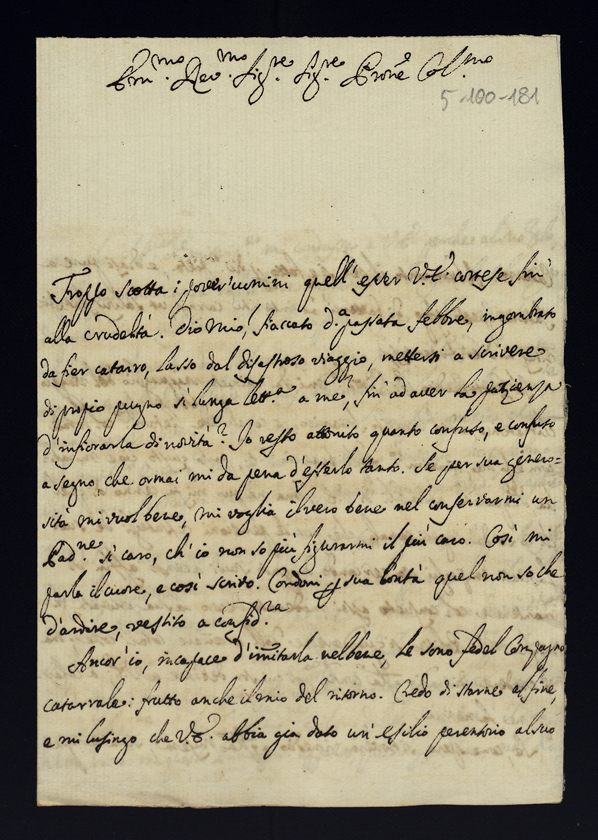 Em.mo Rev.mo Sig.re Sig.re Prone Col.mo
5-100-181
Troppo scotta i pover'uomini quell'esser V.E. cortese fin'
alla crudeltà. Dio mio! fiaccato d.a passata febbre, ingombrato
da fier catarro, lasso dal disastroso viaggio, mettersi a scrivere
di propio pugno sì lunga lett.a a me, fin'ad aver la pazienza
d'infiorarla di novità? Io resto attonito quanto confuso, e confuso
a segno, che ormai mi da pena d'esserlo tanto. Se per sua genero=
sità mi vuol bene, mi voglia il vero bene nel conservarmi un
Pad.ne sì caro, ch'io non so più figurarmi il più caro. Così mi
parla il cuore, e così scrivo. Condoni sua bontà quel non so che
d'ardire, vestito a confid.za
Ancor'io, incapace d'imitarla nel bene, le sono fedel Compagno
catarrale: frutto anche il mio del ritorno. Credo di starne al fine,
e mi lusingo che V.E. abbia già dato un'esilio perentorio al suo